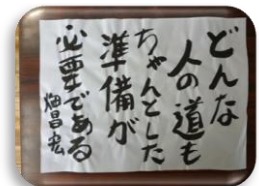 どんな
人の道も
ちゃんとした
準備が
必要である
畑昌宏